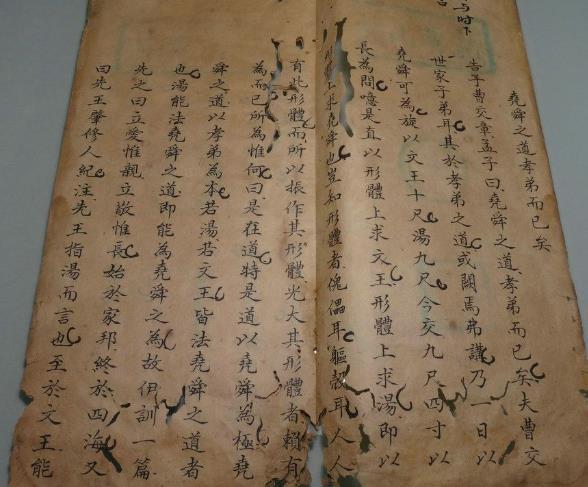 与时下
堯舜之道孝弟而已矣
告子曹交章孟子曰堯舜之道孝弟而已矣夫曹交
世家子弟耳其於孝弟之道或闕焉弗講乃一日以
堯舜可為旋以文王十尺湯九尺今交九尺四寸以
長為問噫是直以形體上求文王形體上求湯即以
形體上求堯舜也豈知形體者傀儡耳軀殼耳人人
有此形體而所以振作其形體光大其形體者賴有
為而已所為惟何曰是在道特是道以堯舜為極堯
舜之道以孝弟為本若湯若文王皆法堯舜之道者
也湯能法堯舜之道即能為堯舜之為故伊訓一篇
先之曰立愛惟親立敬惟長始於家邦終於四海又
曰先王肇修人紀注先王指湯而言也至於文王能